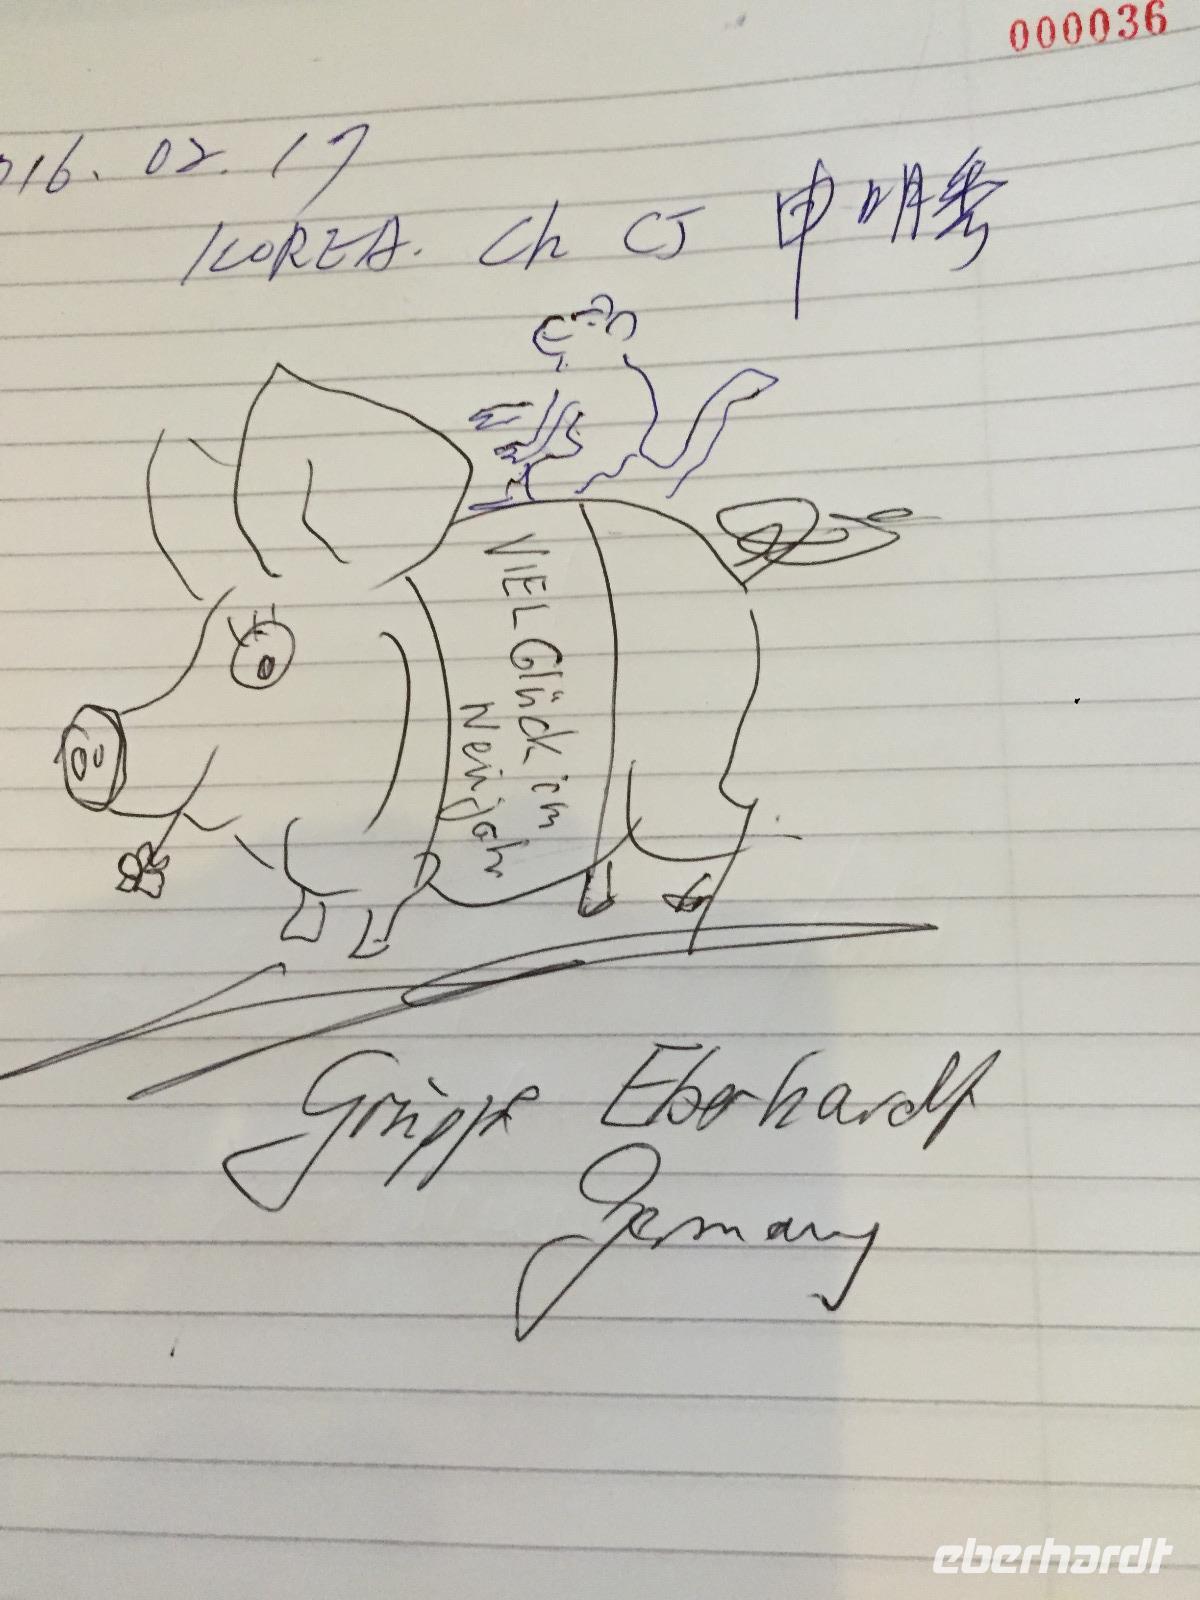 000036
016. 02. 17
KOREA. Ch CJ 申明秀
VIEL Glück im
Neujahr
Gruppe Eberhardt
Germany
eberhardt